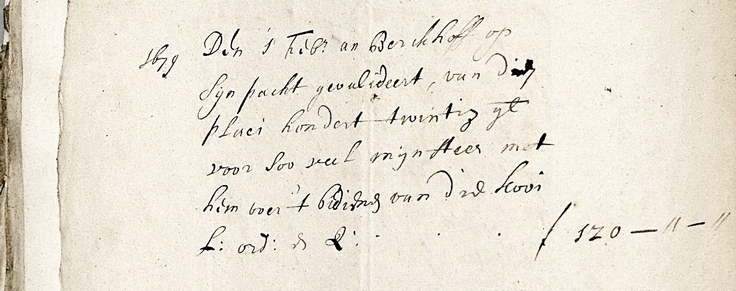 1679 Den 1 Febr an Berckhoff op
syn pacht gevalideert, van diss
placi hondert twintig gl
voor soo veel mijn Heer met
hem voor 't bedienen van die Kooi
L: ord: & Q: . . . . f 120 — 11 — 11